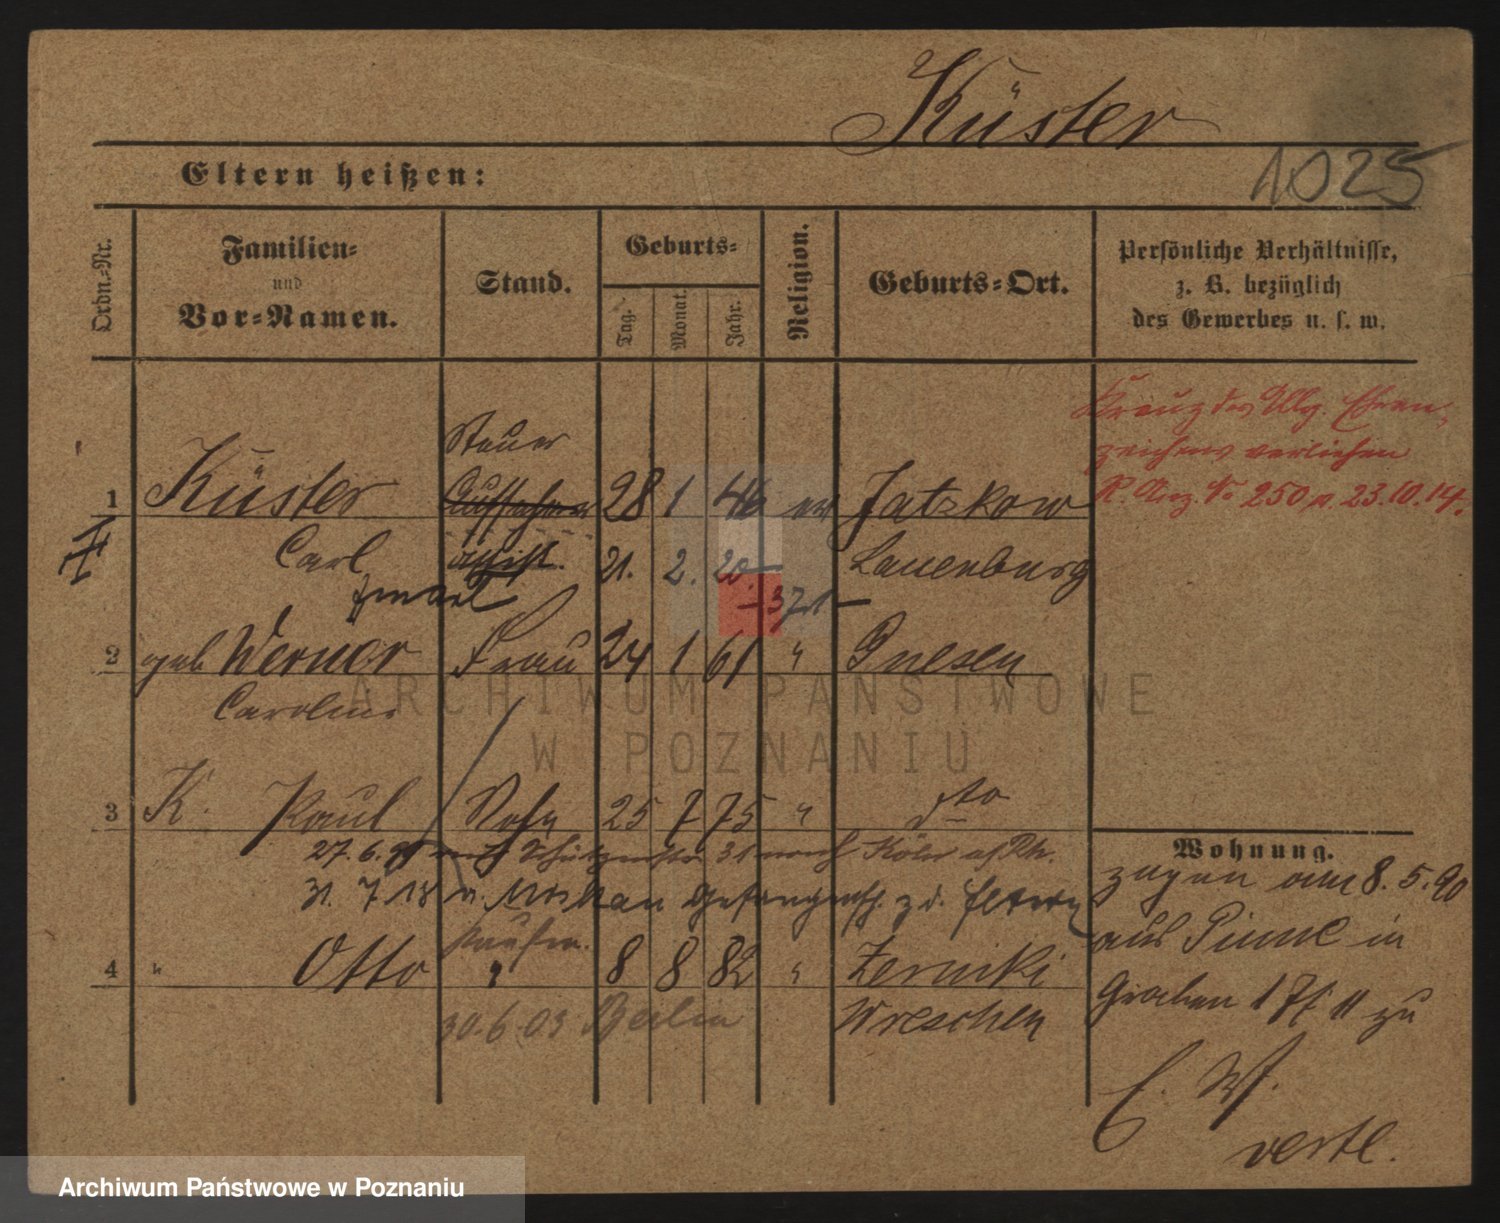 Küster
1025
Eltern heißen:
Ordn.-Nr.
Familien-
und
Vor-Namen.
Stand.
Geburts-
Tag.
Monat.
Jahr.
Religion.
Geburts-Ort.
Persönliche Verhältnisse,
z. B. bezüglich
des Gewerbes u. s. w.
Kreuz des Allg. Ehren-
zeichens verliehen
R. Anz. No 250 v. 23.10.14.
Steuer
1 Küster Aufseher 28 1 46 ev Jatzkow
Carl Assist. 21. 2. 20. Lauenburg
2 geb Werner Frau 24 1 61 " Gnesen
Caroline
3 K. Paul Sohn 25 7 75 " dto
27.6. nach Köln a/Rh.
31. 7. 18 v. Gefangensch. z d. Eltern
Kaufm.
4 " Otto " 8 8 82 " Zerniki
30.6.03 Berlin Wreschen
Wohnung.
zugen am 8.5.90
aus Pinne in
Graben 17 II zu
verte.
ARCHIWUM PAŃSTWOWE
W POZNANIU
Archiwum Państwowe w Poznaniu